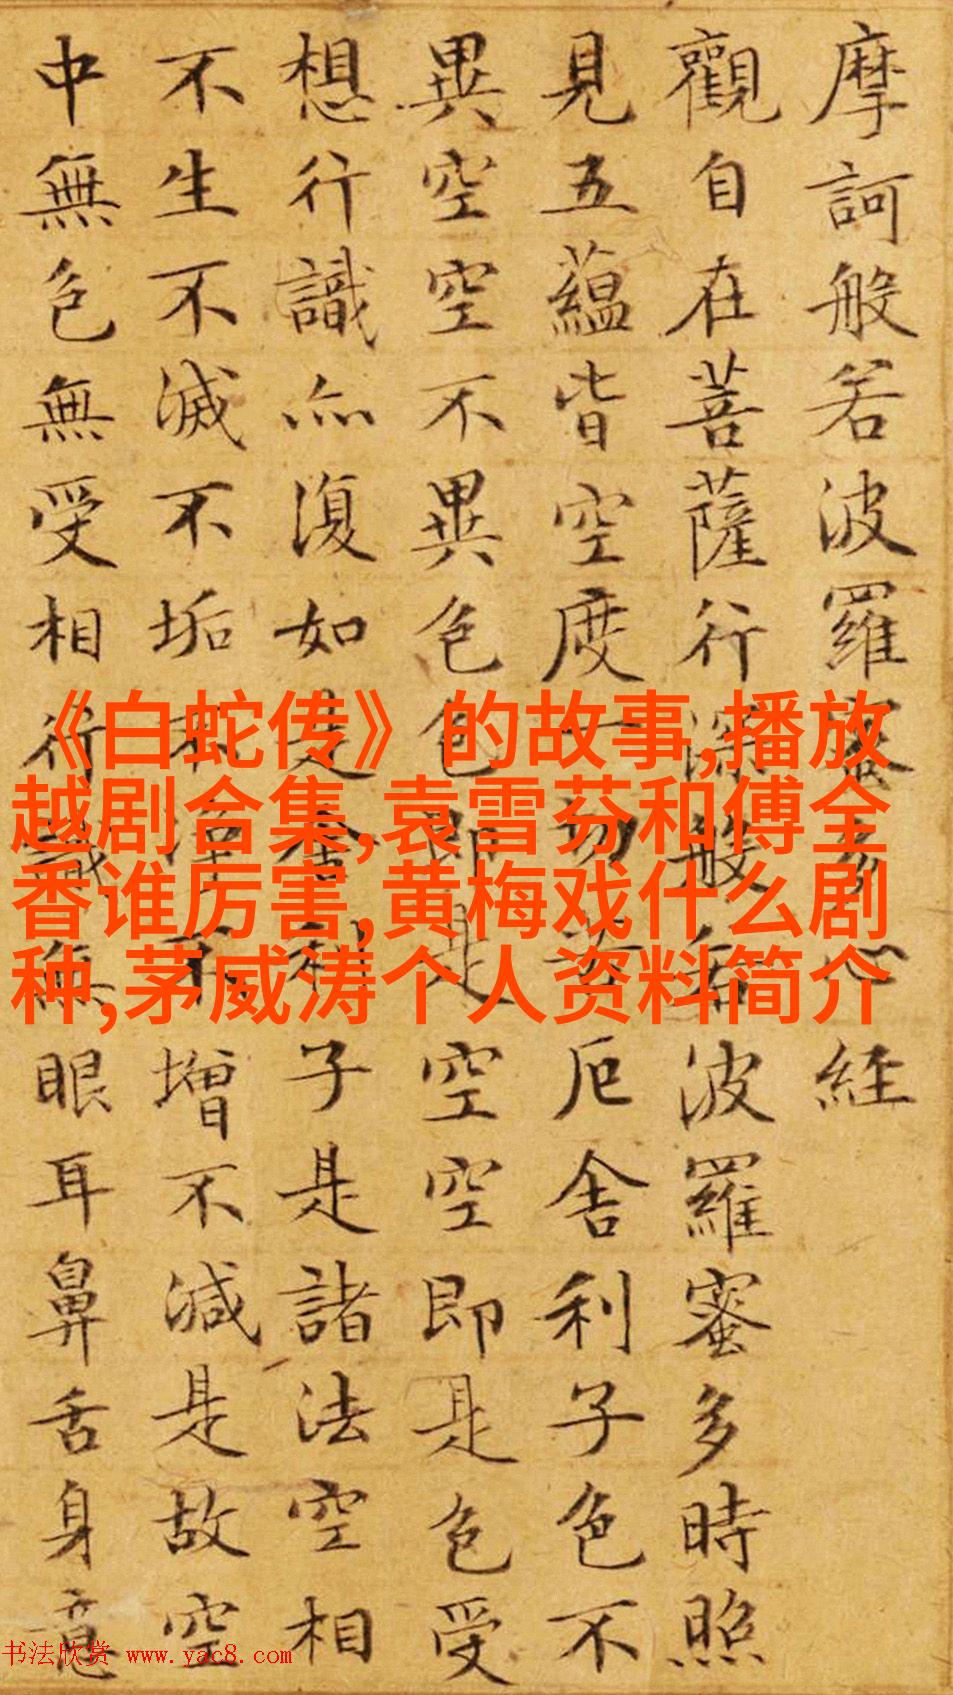 摩訶般若波羅蜜多心經
觀自在菩薩行深般若波羅蜜多時照
見五蘊皆空度一切苦厄舍利子色不
異空空不異色色即是空空即是色受
想行識亦復如是舍利子是諸法空相
不生不滅不垢不淨不增不減是故空
中無色無受相行識無眼耳鼻舌身意
《白蛇传》的故事,播放
越剧合集,袁雪芬和傅全
香谁厉害,黄梅戏什么剧
种,茅威涛个人资料简介
书法欣赏 www.yac8.com